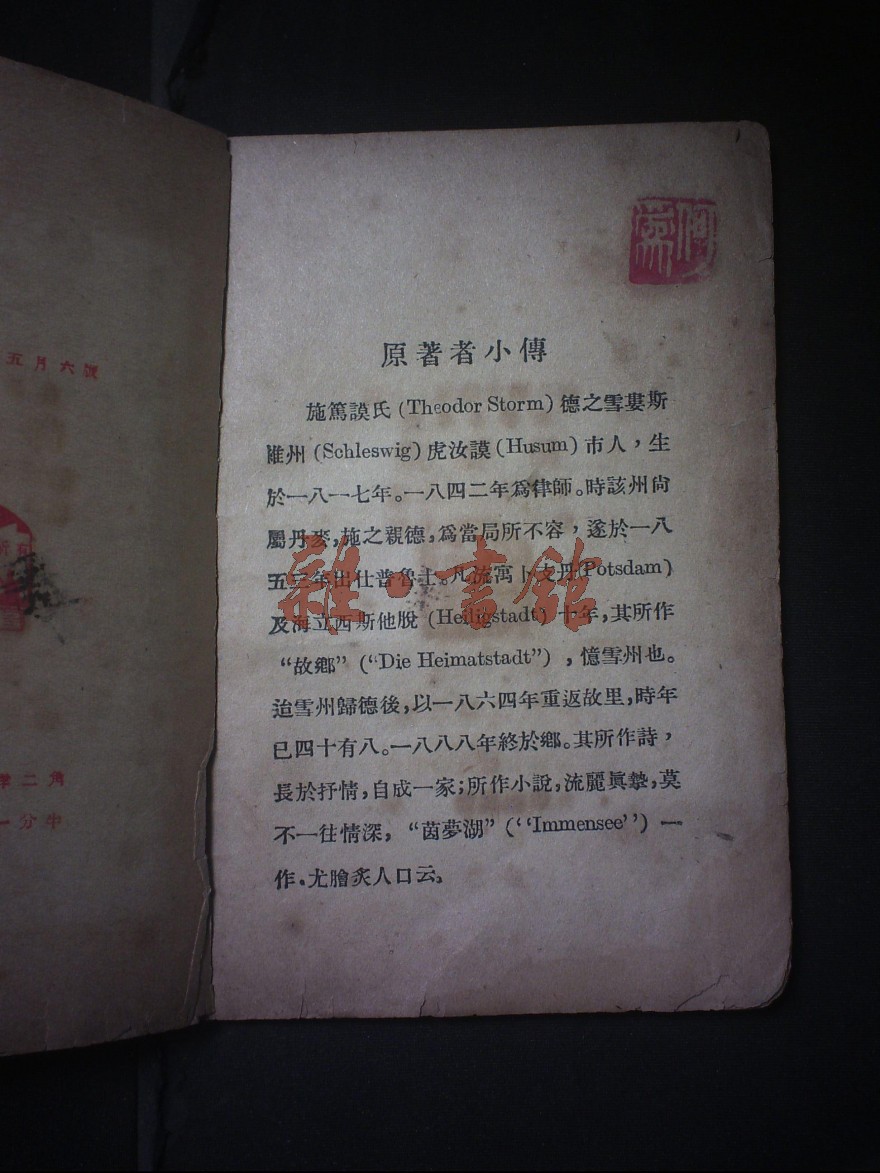 原著者小傳
施篤謨氏 (Theodor Storm) 德之雪婁斯
維州 (Schleswig) 虎汝謨 (Husum) 市人，生
於一八一七年。一八四二年爲律師。時該州尙
屬丹麥，施之親德，爲當局所不容，遂於一八
五三年出仕普魯士。凡流寓卜支丹(Potsdam)
及海立西斯他脫 (Heiligstadt) 十年，其所作
“故鄉” (“Die Heimatstadt”) ，憶雪州也。
迨雪州歸德後，以一八六四年重返故里，時年
已四十有八。一八八八年終於鄉。其所作詩，
長於抒情，自成一家；所作小說，流麗眞摯，莫
不一往情深，“茵夢湖” (‘‘Immensee’’) 一
作，尤膾炙人口云。
雜·書館
五月六號
二角
一分半